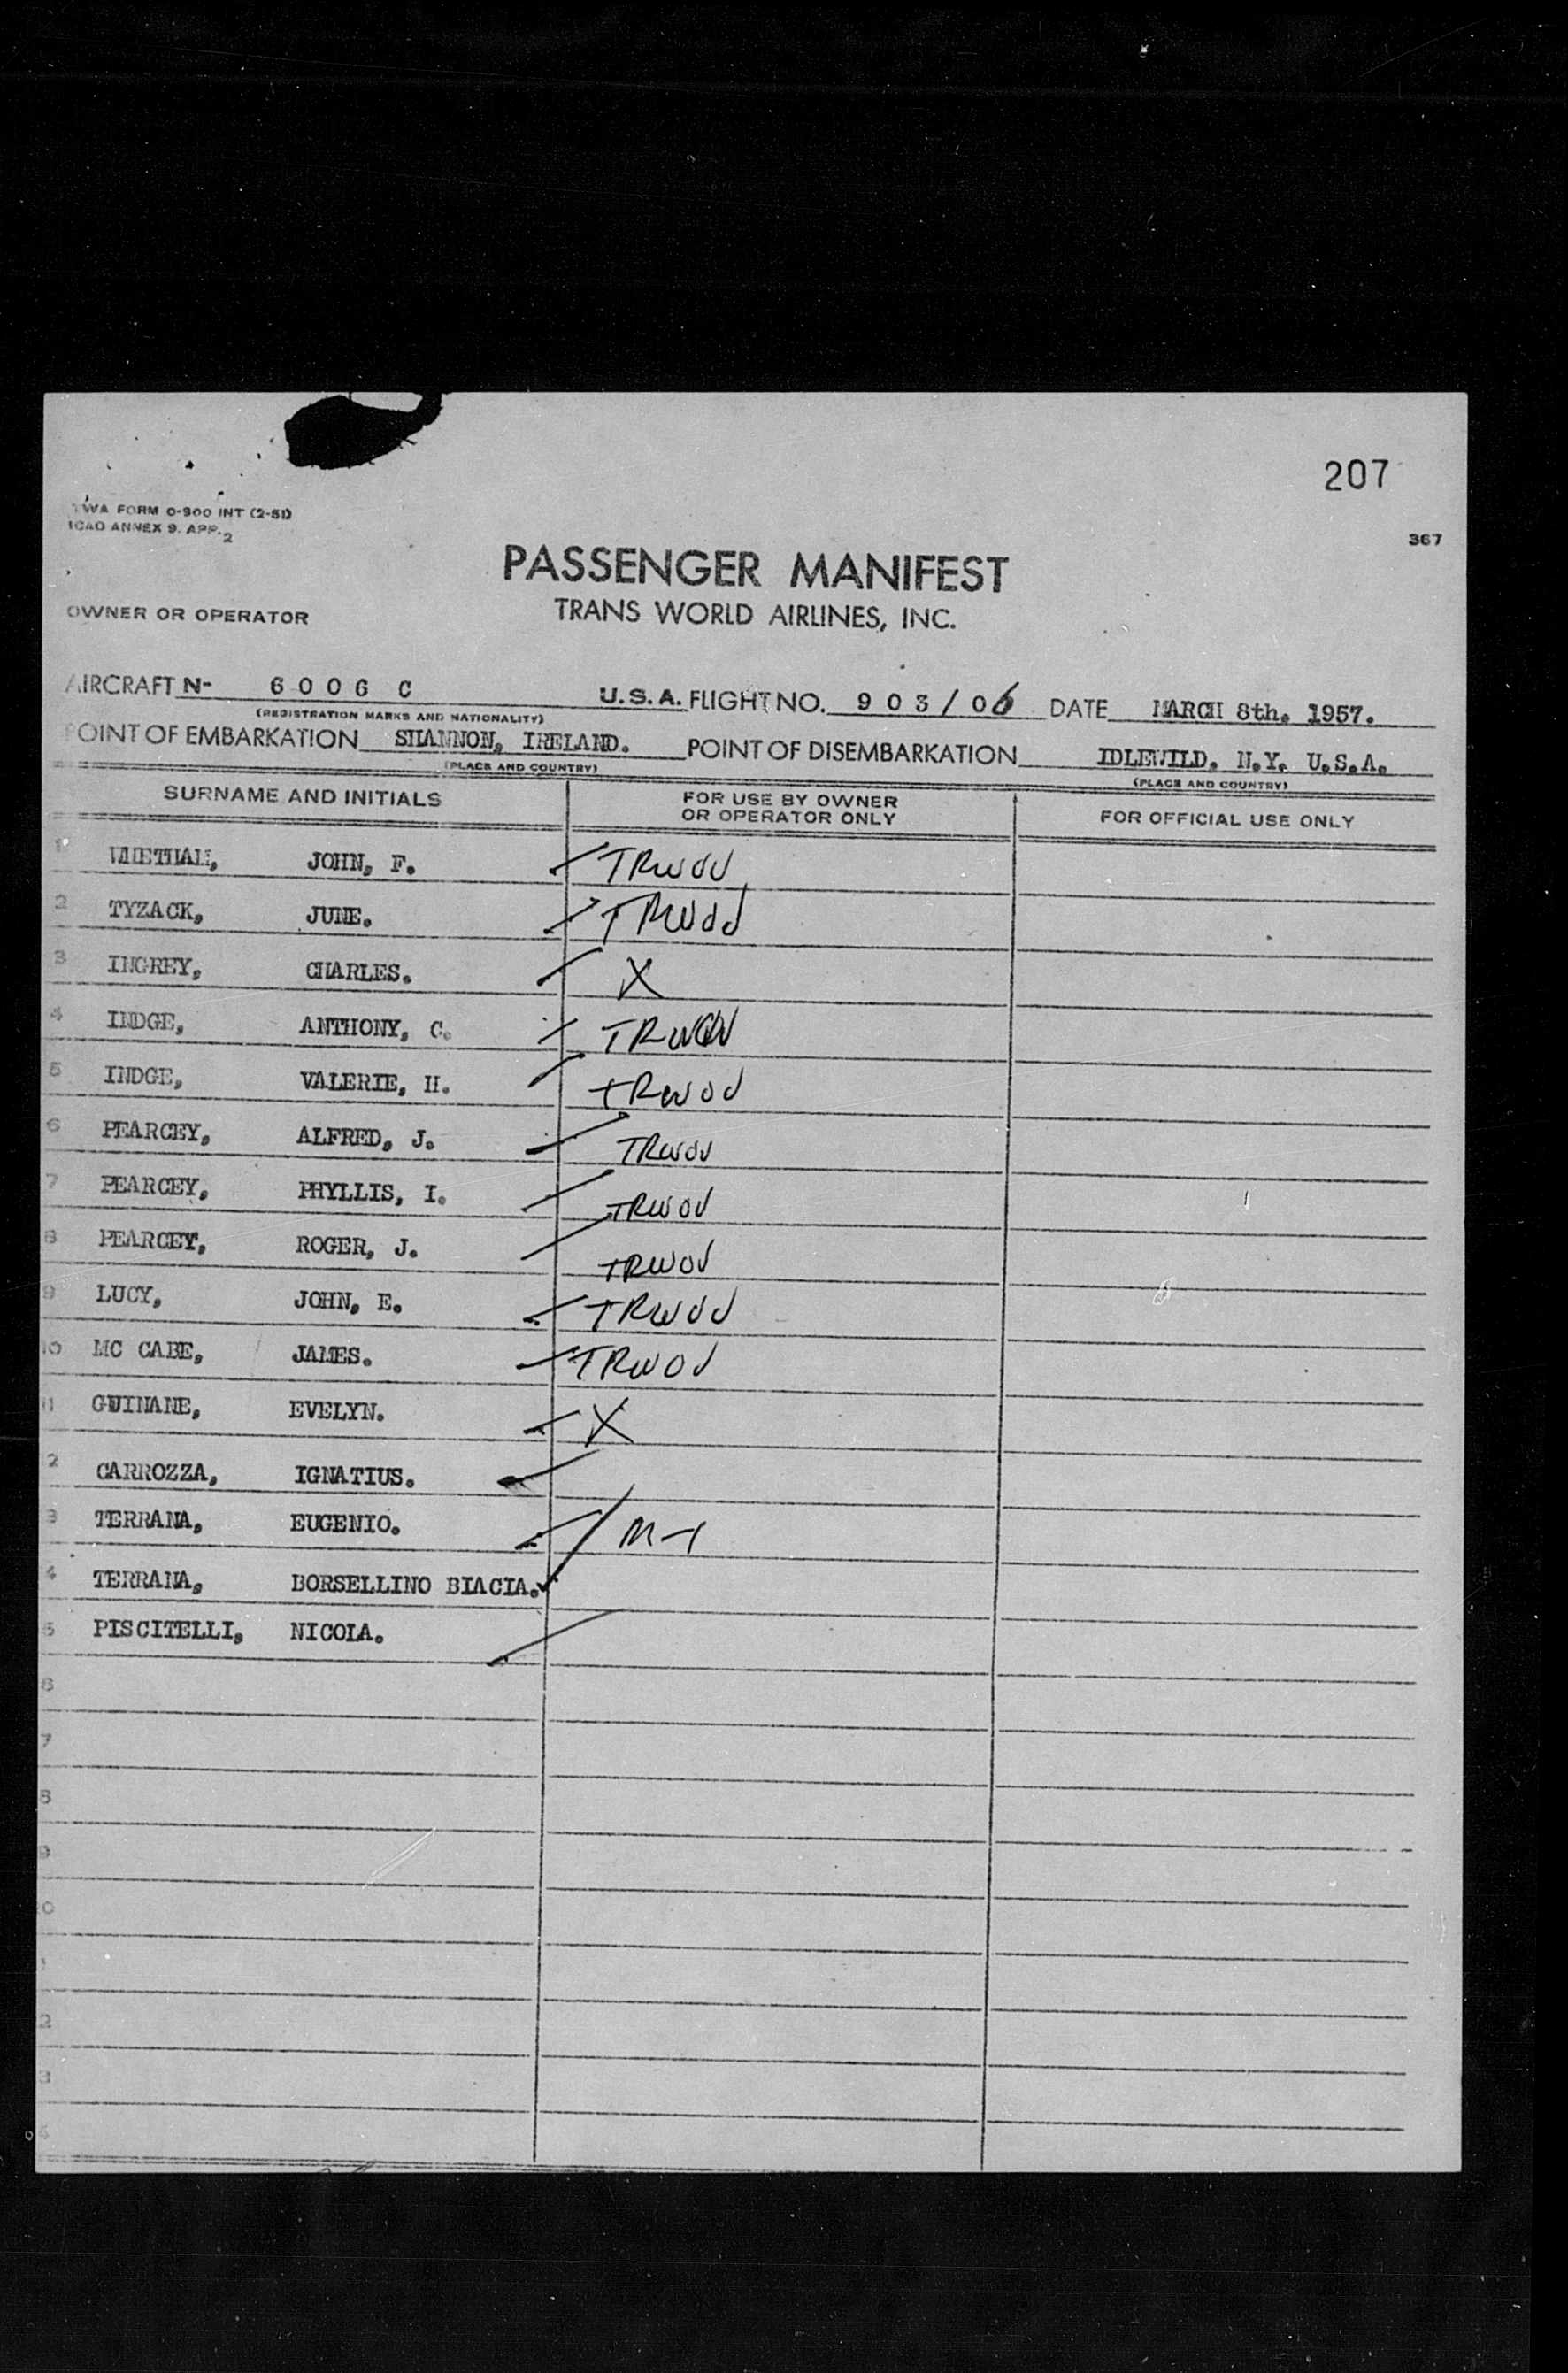 207
TWA FORM O-900 INT (2-51)
ICAO ANNEX 9. APP. 2
367
PASSENGER MANIFEST
OWNER OR OPERATOR TRANS WORLD AIRLINES, INC.
AIRCRAFT N- 6006 C U.S.A. FLIGHT NO. 903/06 DATE MARCH 8th. 1957.
(REGISTRATION MARKS AND NATIONALITY)
POINT OF EMBARKATION SHANNON, IRELAND. POINT OF DISEMBARKATION IDLEWILD. N.Y. U.S.A.
(PLACE AND COUNTRY) (PLACE AND COUNTRY)
SURNAME AND INITIALS FOR USE BY OWNER OR OPERATOR ONLY FOR OFFICIAL USE ONLY
1 WHETHAM, JOHN, F. TRWOV
2 TYZACK, JUNE. TRWOV
3 INGREY, CHARLES. X
4 INDGE, ANTHONY, C. TRWOV
5 INDGE, VALERIE, H. TRWOV
6 PEARCEY, ALFRED, J. TRWOV
7 PEARCEY, PHYLLIS, I. TRWOV
8 PEARCEY, ROGER, J. TRWOV
9 LUCY, JOHN, E. TRWOV
10 MC CABE, JAMES. TRWOV
11 GUINANE, EVELYN. X
2 CARROZZA, IGNATIUS.
3 TERRANA, EUGENIO. M-1
4 TERRANA, BORSELLINO BIACIA.
5 PISCITELLI, NICOLA.
6
7
8
9
0
1
2
3
4